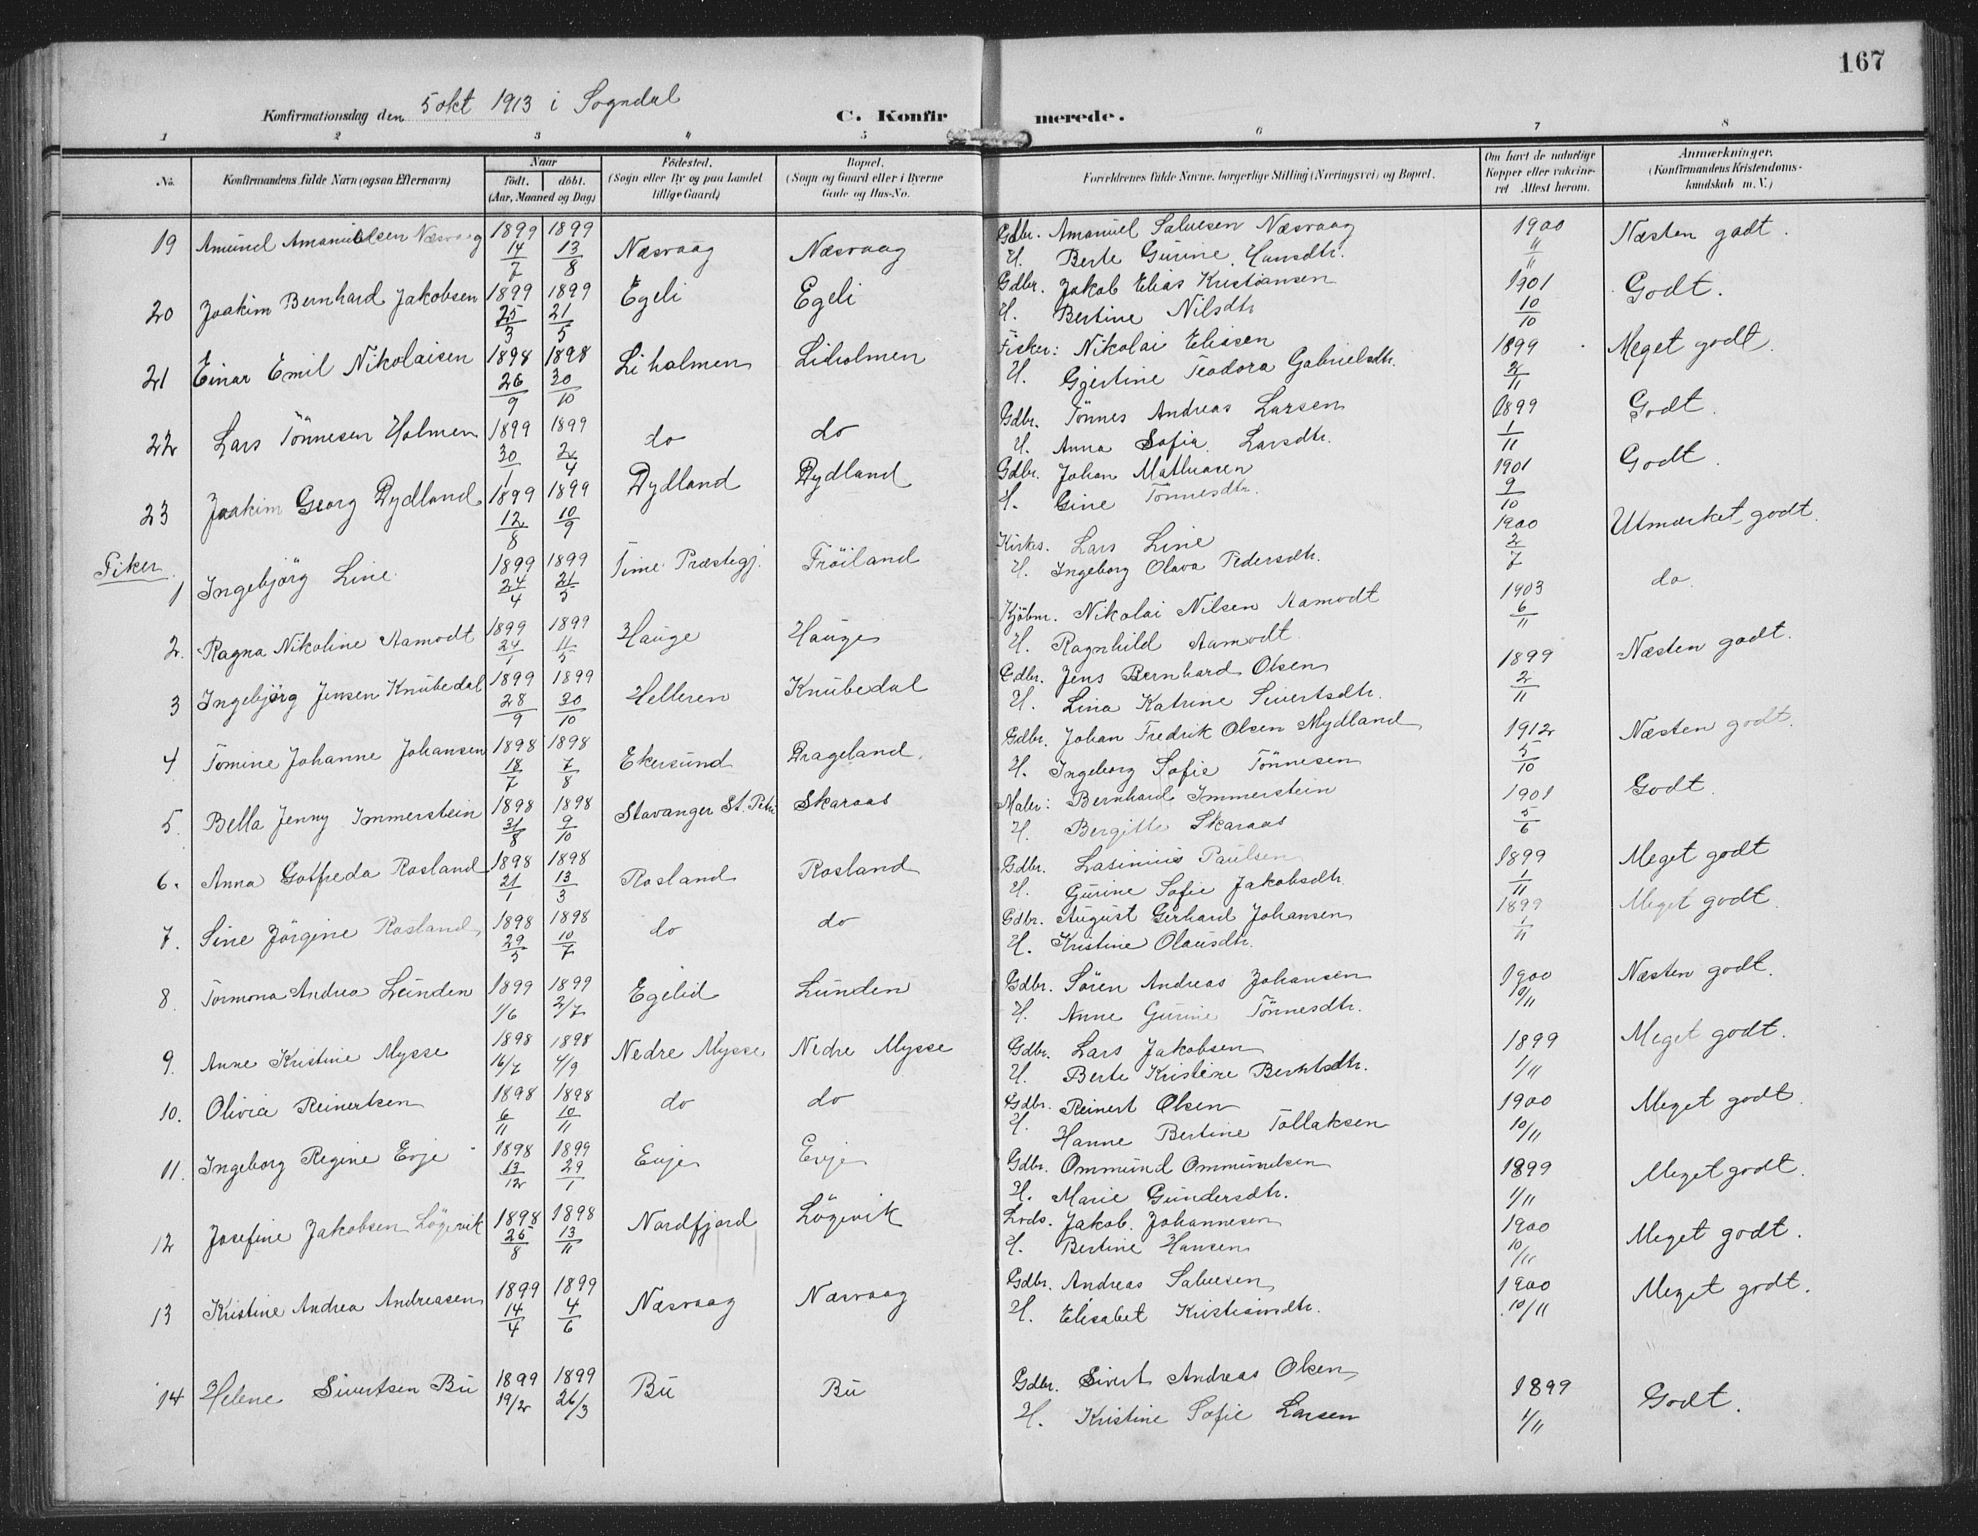 167
Konfirmationsdag den 5 okt 1913 i Sogndal
C. Konfirmerede.
1 2 3 4 5 6 7 8
No. Konfirmandens fulde Navn (ogsaa Efternavn) Naar født. døbt. (Aar, Maaned og Dag) Fødested. (Sogn eller By og paa Landet tillige Gaard) Bopæl. (Sogn og Gaard eller i Byerne Gade og Hus-No. Forældrenes fulde Navne, borgerlige Stilling (Næringsvei) og Bopæl. Om havt de naturlige Kopper eller vakcineret Attest herom. Anmærkninger. (Konfirmandens Kristendomskundskab m. V.)
19 Amund Amanuelsen Næsvaag 1899 14/7 1899 13/8 Næsvaag Næsvaag Gdbr. Amanuel Salvesen Næsvaag 1900 Næsten godt.
H. Berte Gurine Hansdtr.
20 Joakim Bernhard Jakobsen 1899 25/3 1899 21/5 Egeli Egeli Gdbr. Jakob Elias Kristiansen 1901 10/10 Godt.
H. Bertine Nilsdtr
21 Einar Emil Nikolaisen 1898 26/9 1898 30/10 Liholmen Liholmen Fisker: Nikolai Eliasen 1899 2/11 Meget godt.
H. Gjertine Teodora Gabrielsdtr.
22 Lars Tönnesen Holmen 1899 30/1 1899 2/4 do do Gdbr. Tönnes Andreas Larsen 1899 1/11 Godt.
H. Anna Sofie Larsdtr.
23 Joakim Georg Dydland 1899 12/8 1899 10/9 Dydland Dydland Gdbr. Johan Mathiasen 1901 9/10 Godt.
H. Gine Tönnesdtr.
Piker.
1 Ingebjörg Line 1899 24/4 1899 21/5 Time Præstegj. Fröiland Kirkes. Lars Line 1900 2/7 Utmærket godt.
H. Ingeborg Olava Pedersdtr.
2. Ragna Nikoline Aamodt 1899 24/1 1899 11/5 Hauge Hauge Kjöbm. Nikolai Nilsen Aamodt 1903 6/11 do.
H. Ragnhild Aamodt.
3 Ingebjörg Jensen Knubedal 1899 28/9 1899 30/10 Helleren Knubedal Gdbr. Jens Bernhard Olsen 1899 2/11 Næsten godt.
H. Lina Katrine Sivertsdtr.
4 Tomine Johanne Johansen 1898 18/7 1898 7/8 Ekersund Drageland. Gdbr. Johan Fredrik Olsen Mydland 1912 5/10 Næsten godt.
H. Ingeborg Sofie Tönnesen
5. Bella Jenny Immerstein 1898 31/8 1898 9/10 Stavanger St. Petri Skaraas Maler: Bernhard Immerstein 1901 5/6 Godt.
H. Bergitte Skaraas
6. Anna Gotfreda Rosland 1898 21/1 1898 13/3 Rosland Rosland Gdbr. Lasinius Paulsen 1899 1/11 Meget godt
H. Gurine Sofie Jakobsdtr.
7. Sine Jörgine Rosland 1898 29/5 1898 10/7 do do Gdbr. August Gerhard Johansen 1899 1/11 Meget godt.
H. Kristine Olausdtr.
8. Tormona Andrea Lunden 1899 1/6 1899 2/7 Egelid Lunden Gdbr. Sören Andreas Johansen 1900 10/11 Næsten godt.
H. Anne Gurine Tönnesdtr.
9. Anne Kristine Mysse 1898 16/7 1898 4/9 Nedre Mysse Nedre Mysse Gdbr. Lars Jakobsen 1899 1/11 Meget godt.
H. Berte Kristine Berntsdtr.
10. Olivia Reinertsen 1898 6/11 1898 10/11 do do Gdbr. Reinert Olsen 1900 10/11 Meget godt.
H. Hanne Bertine Tollaksen
11. Ingeborg Regine Evje 1898 13/12 1899 29/1 Evje Evje Gdbr. Ommund Ommundsen 1899 1/11 Meget godt.
H. Marie Gundersdtr.
12 Josefine Jakobsen Lögevik 1898 25/8 1898 13/11 Nordfjord Lögevik Lods. Jakob Johannesen 1900 10/11 Meget godt.
H. Bertine Hansen
13 Kristine Andrea Andreasen 1899 14/4 1899 4/6 Næsvaag Næsvaag Gdbr. Andreas Salvesen 1900 10/11 Meget godt.
H. Elisabet Kristiansdtr.
14 Helene Sivertsen Bu 1899 19/2 1899 26/3 Bu Bu Gdbr. Sivert Andreas Olsen 1899 1/11 Godt.
H. Kristine Sofie Larsen